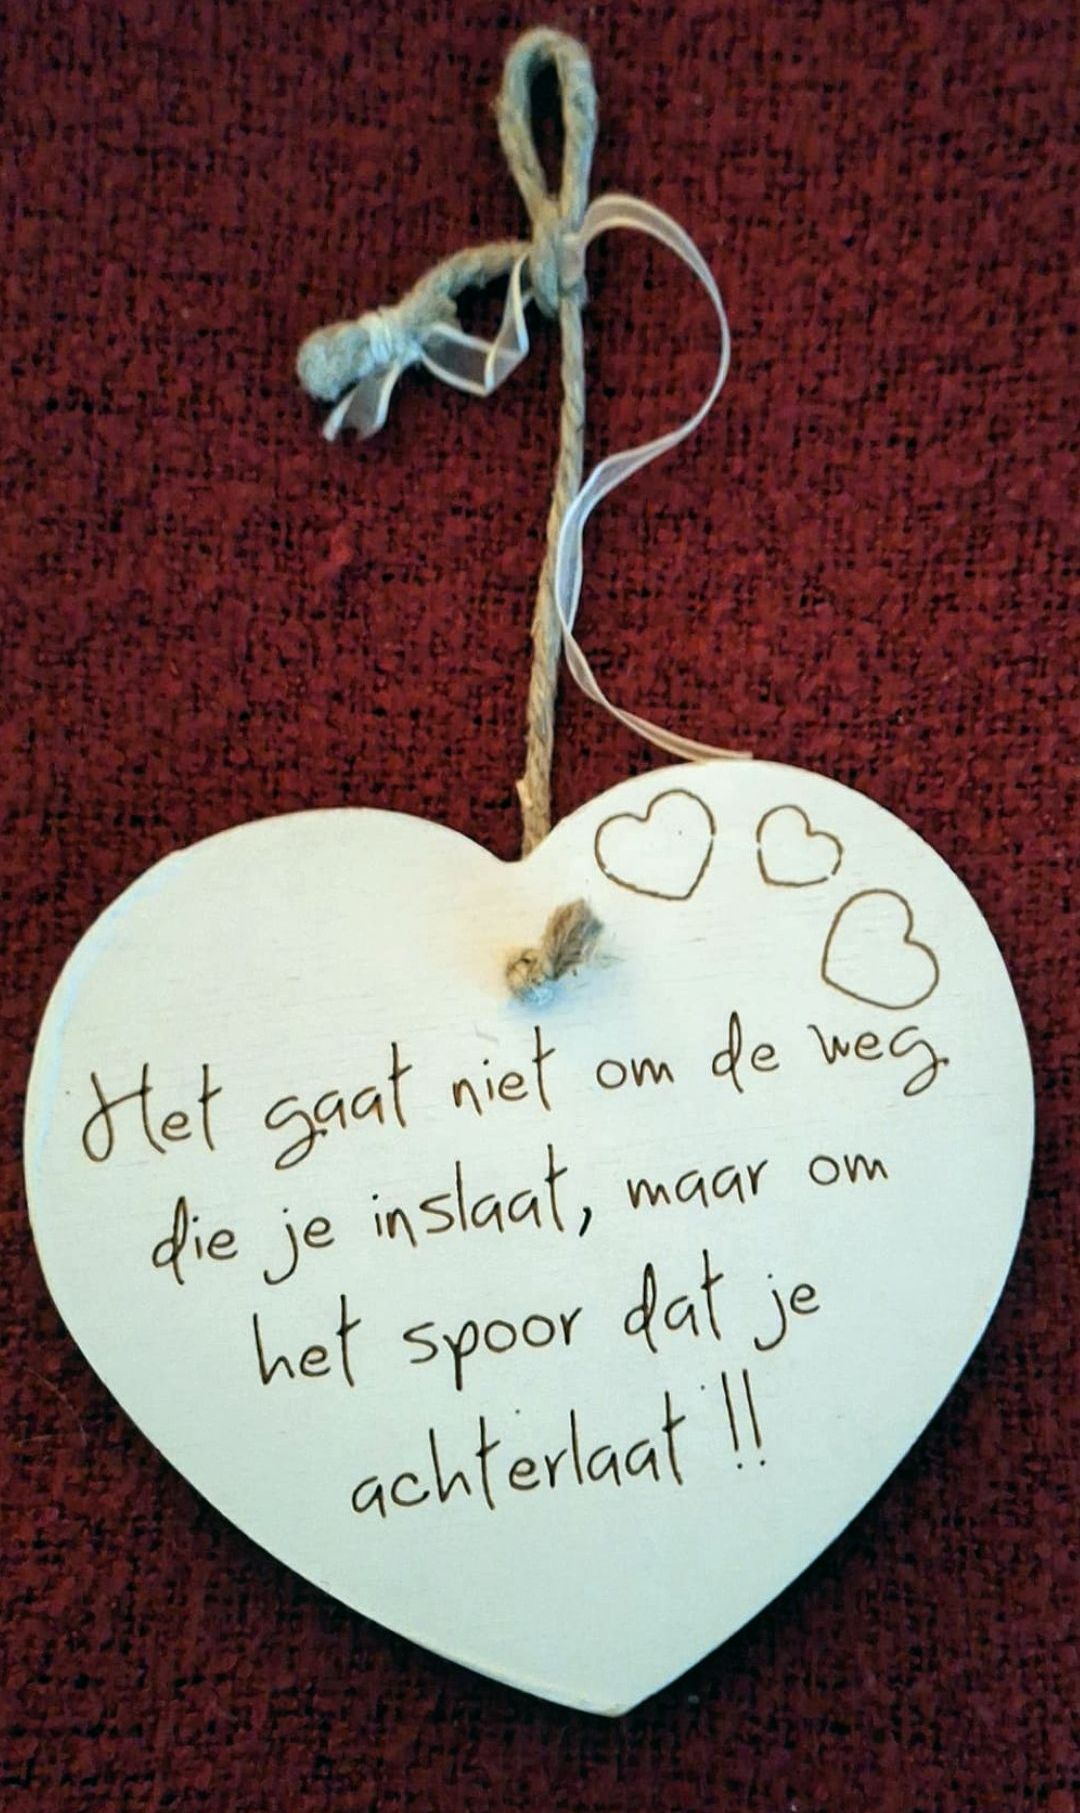 Het gaat niet om de weg
die je inslaat, maar om
het spoor dat je
achterlaat !!